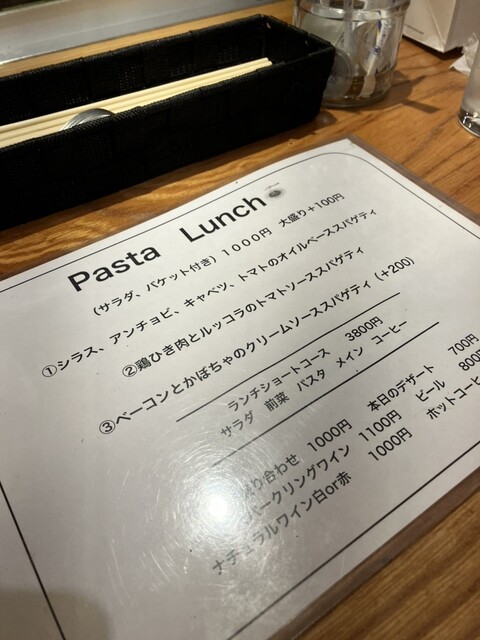 Pasta Lunch
(サラダ、バケット付き) 1000円 大盛り+100円
①シラス、アンチョビ、キャベツ、トマトのオイルベーススパゲティ
②鶏ひき肉とルッコラのトマトソーススパゲティ
③ベーコンとかぼちゃのクリームソーススパゲティ(+200)
ランチショートコース 3800円
サラダ 前菜 パスタ メイン コーヒー
り合わせ 1000円 本日のデザート 700円
パークリングワイン 1100円 ビール 800
ナチュラルワイン白or赤 1000円 ホットコーヒ